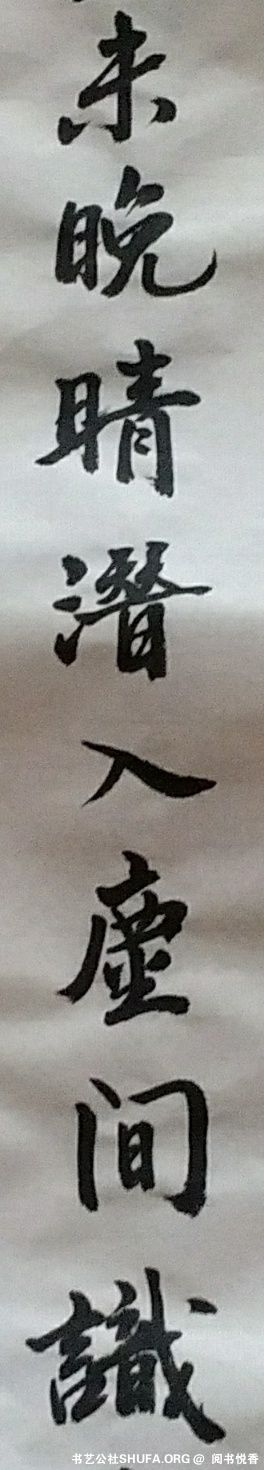 未晚晴潜入虚间識
书艺公社SHUFA.ORG @ 阅书悦香